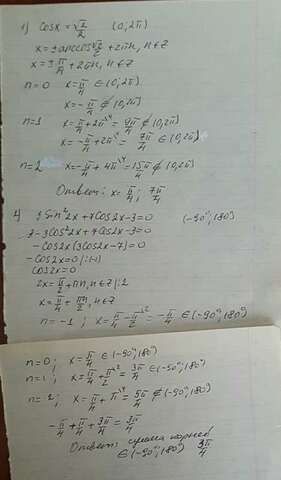 1) cosx = √2/2 (0; 2π)
x = ± arccos √2/2 + 2πn, n∈Z
x = ± π/4 + 2πn, n∈Z
n=0 x = π/4 ∈ (0; 2π)
x = -π/4 ∉ (0; 2π)
n=1 x = π/4 + 2π = 9π/4 ∉ (0; 2π)
x = -π/4 + 2π = 7π/4 ∈ (0; 2π)
n=2 x = -π/4 + 4π = 15π/4 ∉ (0; 2π)
Ответ: x = π/4; 7π/4
3sin²2x + 7cos2x - 3 = 0 (-90°; 180°)
3 - 3cos²2x + 7cos2x - 3 = 0
-cos2x(3cos2x - 7) = 0
-cos2x = 0 |:(-1)
cos2x = 0
2x = π/2 + πn, n∈Z |:2
x = π/4 + πn/2, n∈Z
n = -1; x = π/4 - π/2 = -π/4 ∈ (-90°; 180°)
n=0; x = π/4 ∈ (-90°; 180°)
n=1; x = π/4 + π/2 = 3π/4 ∈ (-90°; 180°)
n=2; x = π/4 + π = 5π/4 ∉ (-90°; 180°)
-π/4 + π/4 + 3π/4 = 3π/4
Ответ: сумма корней
∈ (-90°; 180°) 3π/4